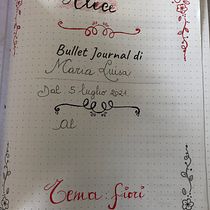 Bullet Journal di
Maria Luisa
Dal 5 luglio 2021
Al
Tema: fiori